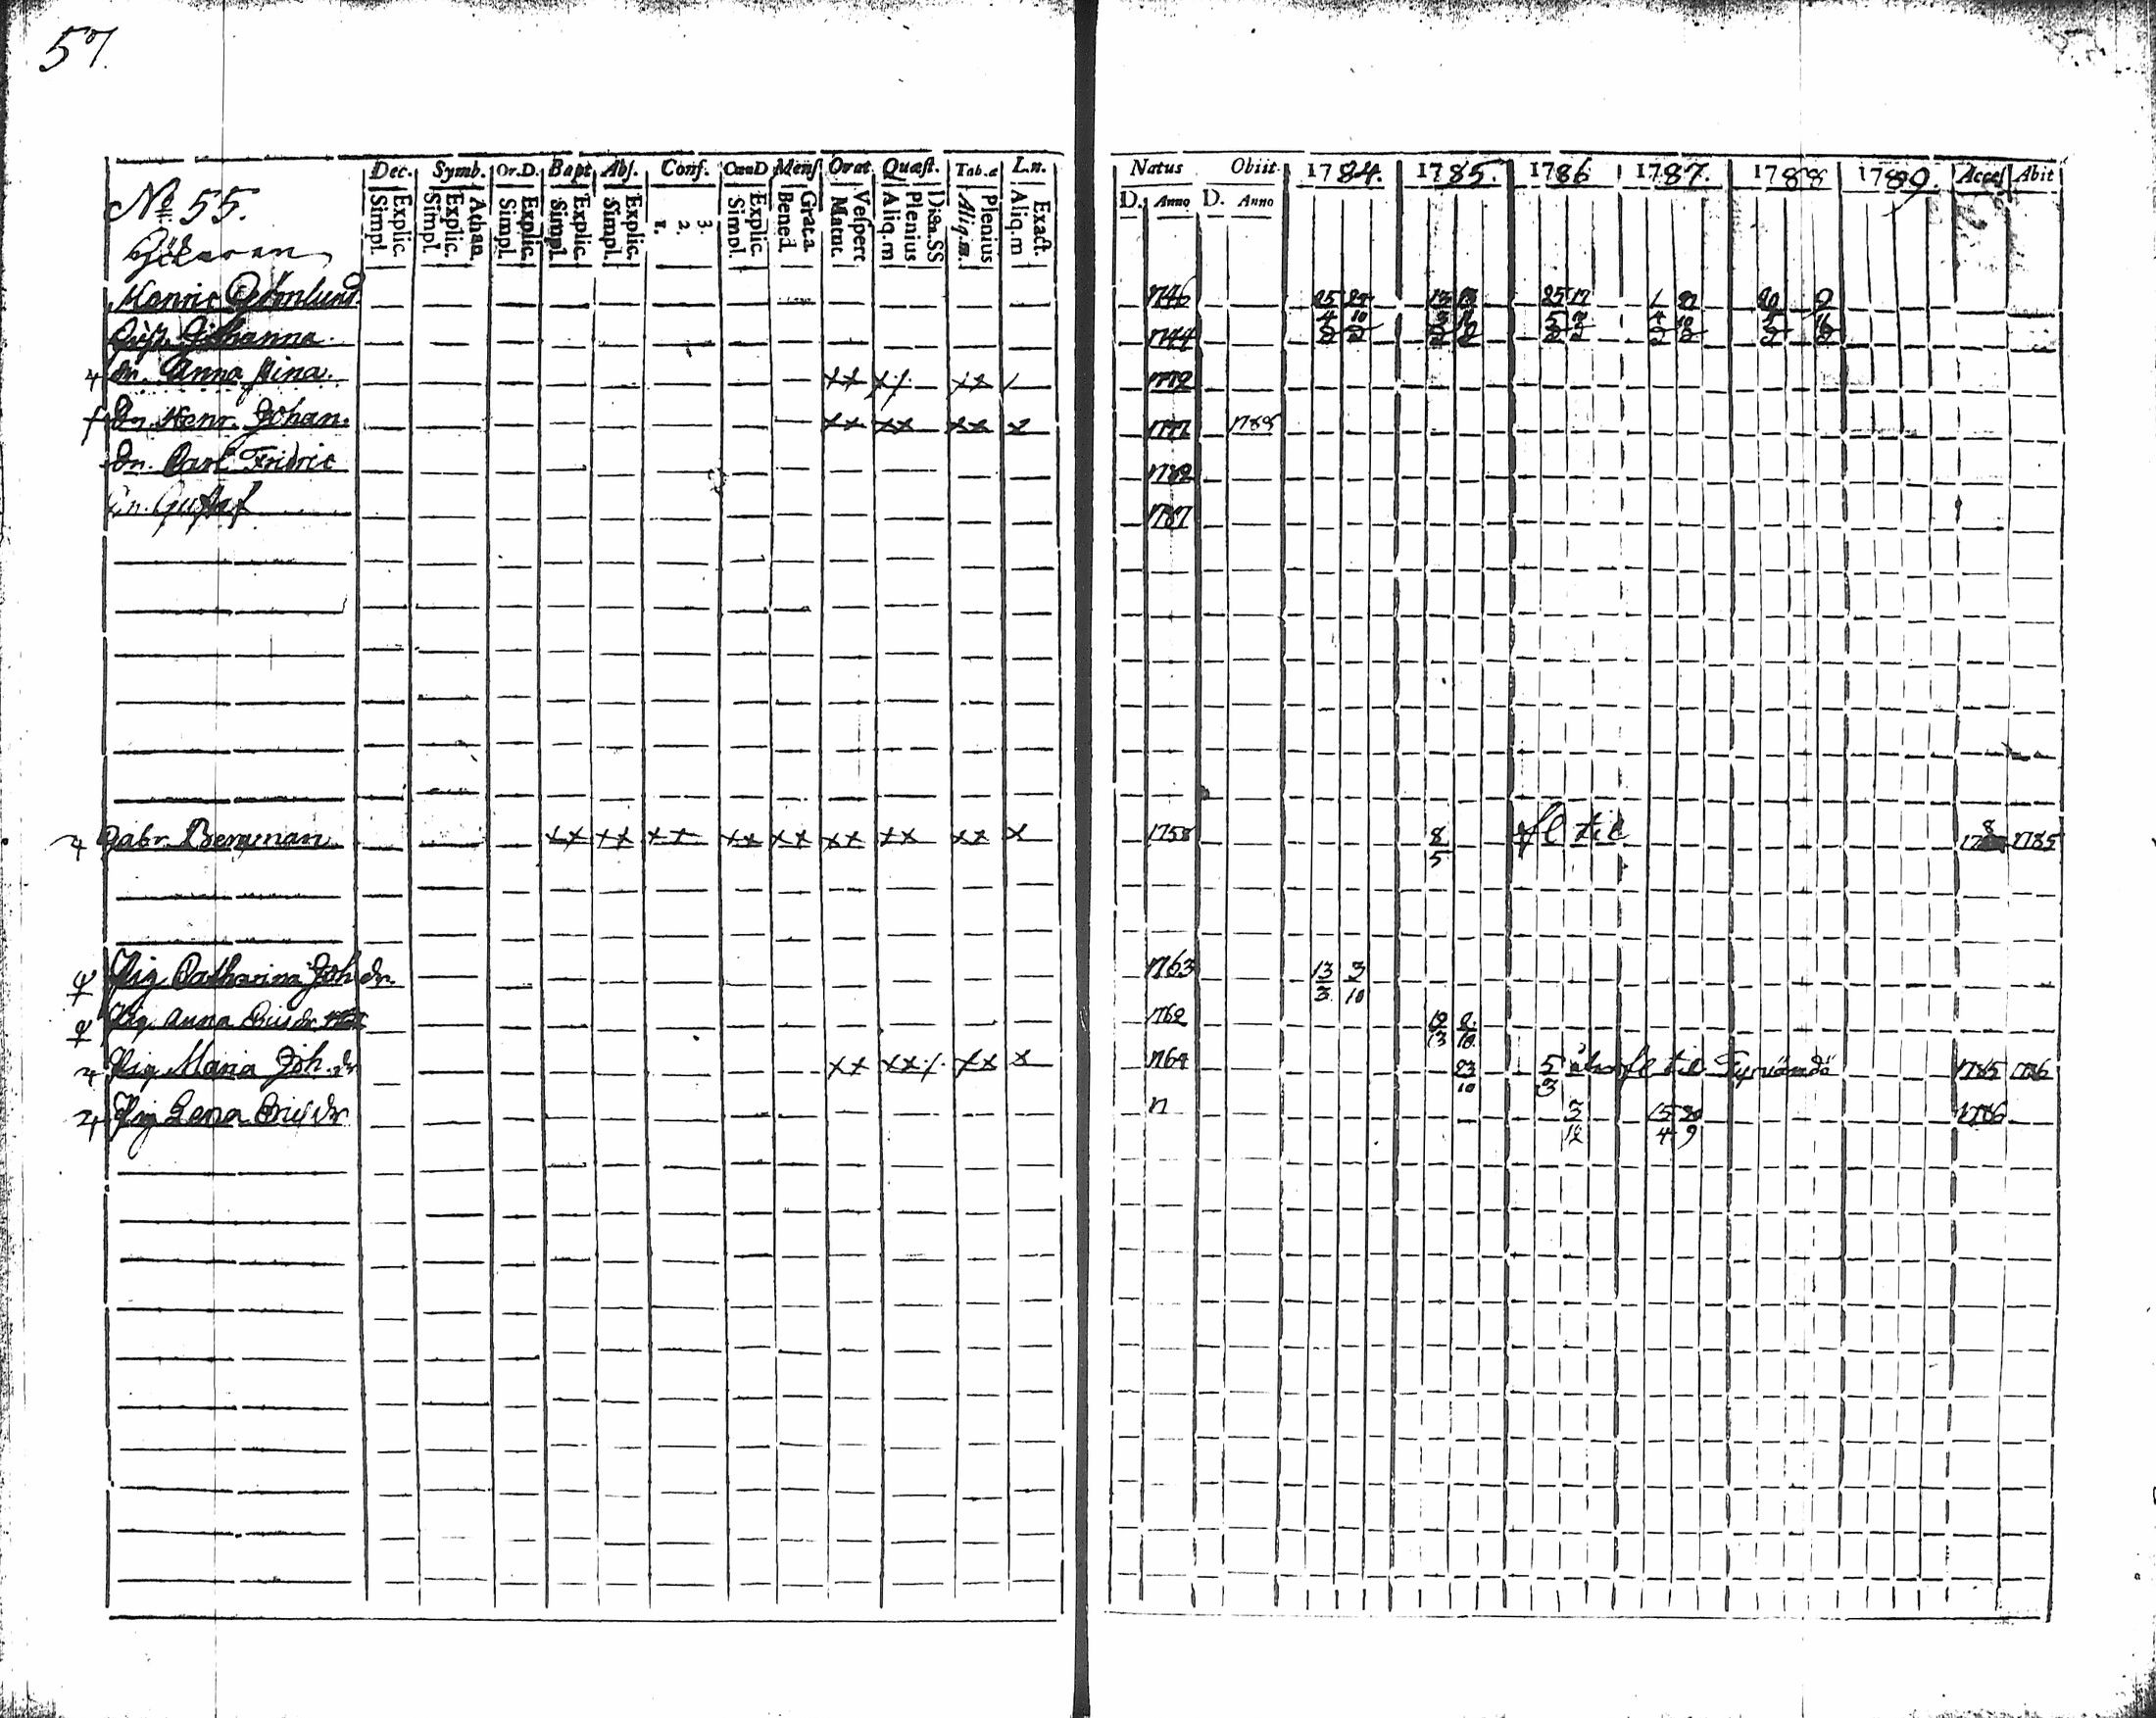 57.
Dec. Symb. Or.D. Bapt. Abs. Conf. CœnD Mens Orat. Quæst. Tab.œ L.n. Natus Obiit 1784. 1785. 1786 1787. 1788 1789. Acces Abit
Explic. Simpl. Athan. Explic. Simpl. Explic. Simpl. Explic. Simpl. Explic. Simpl. 3. 2. 1. Explic. Simpl. Grat.a Bened. Vespert Matut. Dicta.SS Plenius Aliq.m Plenius Aliq.m. Exact. Aliq.m D. Anno D. Anno
No 55.
Henric 1746 25 13 25 17 1 20 2
4 10 5 4 10
Johanna 1744
dr. Anna Stina xx x/ xx / 1772
Sn Henr. Johan. xx xx xx x 1777 1788
Sn. Carl Fridric 1782
Sn. Gustaf 1787
Gabr. Bergman xx xx xx xx xx xx xx xx x 1758 8 fl til 178 1785
5
Pig. Catharina Joh. dr. 1763 13 3
3 10
Pig. Anna Ericsdr 1762 12
13 10
Pig. Maria Joh. dr xx xx/. xx x 1764 23 5 fl til 1785 1786
10 3
Pig Lena Ericsdr 3 15 20 1786
12 4 9